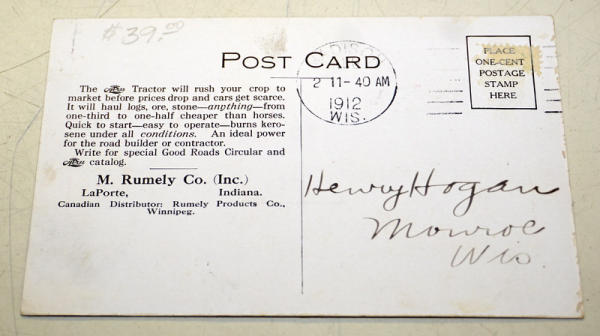 $39.00
POST CARD
PLACE
ONE-CENT
POSTAGE
STAMP
HERE
2 11-40 AM
1912
WIS.
The Tractor will rush your crop to
market before prices drop and cars get scarce.
It will haul logs, ore, stone—anything—from
one-third to one-half cheaper than horses.
Quick to start—easy to operate—burns kero-
sene under all conditions. An ideal power
for the road builder or contractor.
Write for special Good Roads Circular and
catalog.
M. Rumely Co. (Inc.)
LaPorte, Indiana.
Canadian Distributor: Rumely Products Co.,
Winnipeg.
Henry Hogan
Monroe
Wis.